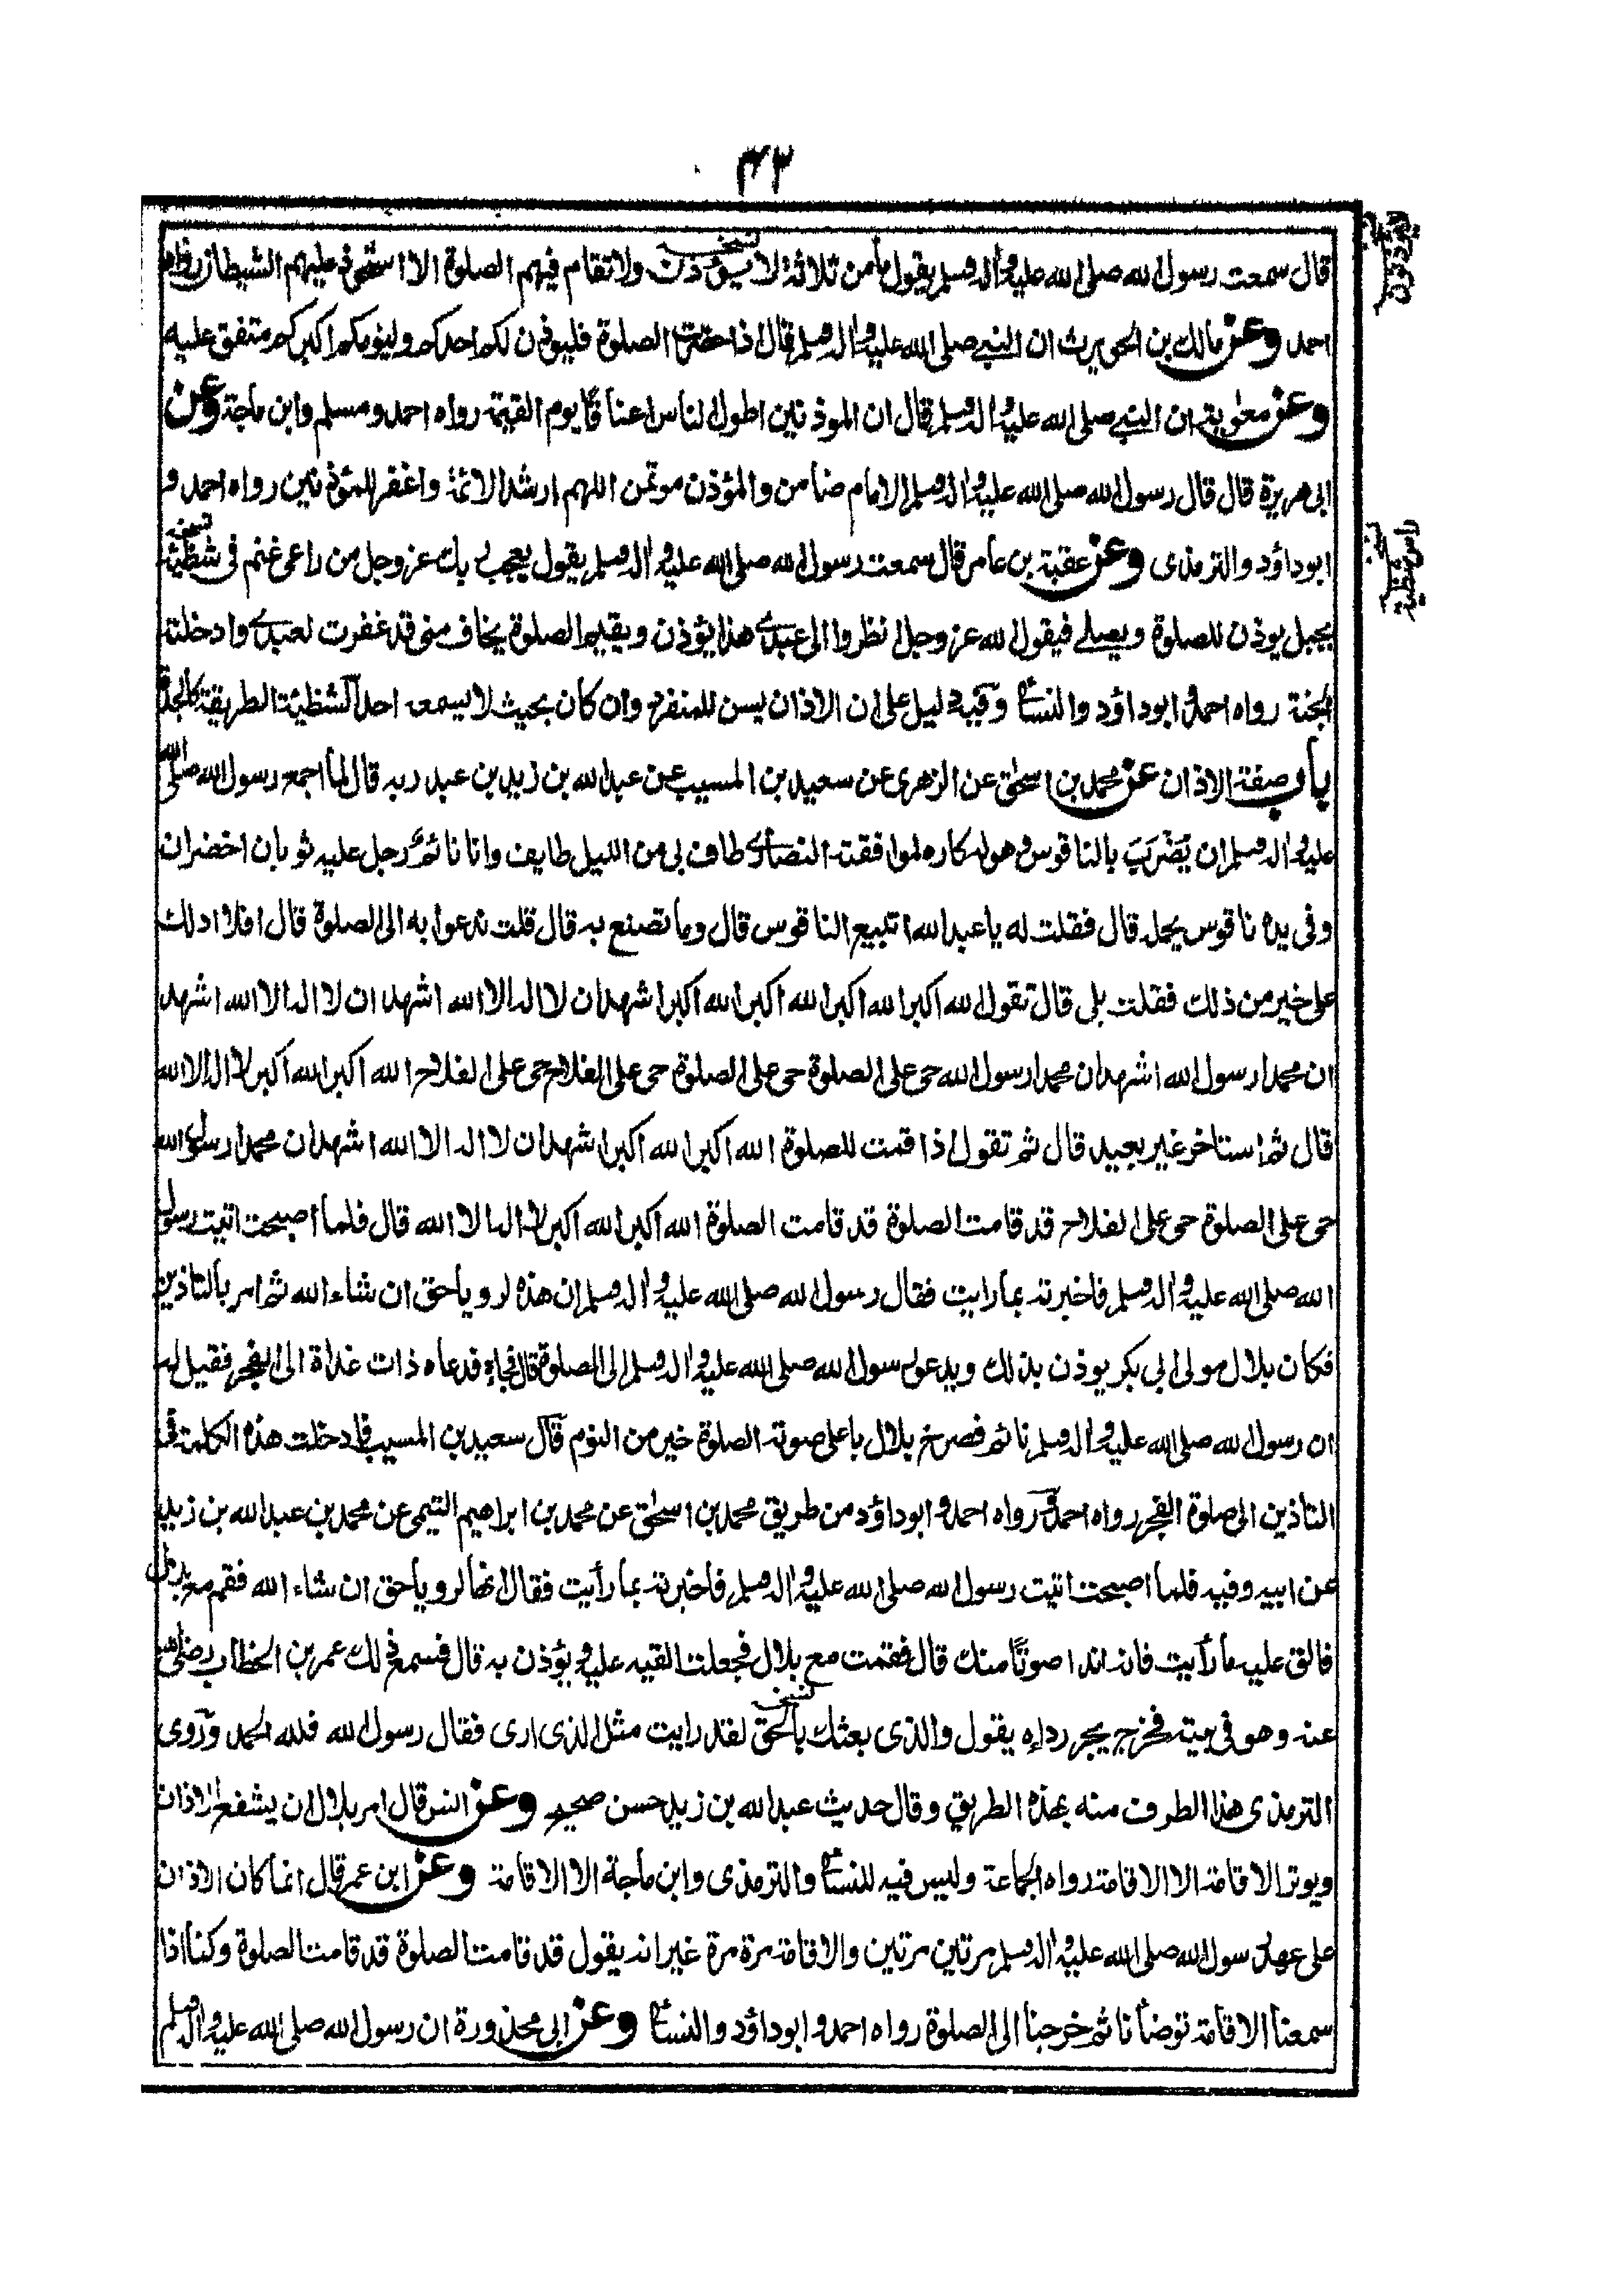 ٤٣
قال سمعت رسول الله صلى الله عليه وآله وسلم يقول ما من ثلاثة لا يؤذن ولا تقام فيهم الصلوة الا استحوذ عليهم الشيطان رواه
احمد وعن مالك بن الحويرث ان النبي صلى الله عليه وآله وسلم قال اذا حضرت الصلوة فليوذن لكم احدكم وليؤمكم اكبركم متفق عليه
وعن معوية ان النبي صلى الله عليه وآله وسلم قال ان الموذنين اطول الناس اعناقا يوم القيمة رواه احمد ومسلم وابن ماجة وعن
ابى هريرة قال قال رسول الله صلى الله عليه وآله وسلم الامام ضامن والمؤذن موتمن اللهم ارشد الائمة واغفر للمؤذنين رواه احمد و
ابوداؤد والترمذى وعن عقبة بن عامر قال سمعت رسول الله صلى الله عليه وآله وسلم يقول يعجب ربك عز وجل من راعى غنم فى شظية
بجبل يوذن للصلوة ويصلى فيقول الله عز وجل انظروا الى عبدى هذا يؤذن ويقيم الصلوة يخاف منى قد غفرت لعبدى وادخلته
الجنة رواه احمد وابوداؤد والنسائى وفيه دليل على ان الاذان يسن للمنفرد وان كان بحيث لا يسمعه احد الشظية الطريقة كالجدة
باب صفة الاذان عن محمد بن اسحق عن الزهرى عن سعيد بن المسيب عن عبد الله بن زيد بن عبد ربه قال لما اجمع رسول الله صلى الله
عليه وآله وسلم ان يضرب بالناقوس وهو له كاره لموافقته النصارى طاف بى من الليل طايف وانا نائم رجل عليه ثوبان اخضران
وفى يده ناقوس يحمله قال فقلت له يا عبد الله اتبيع الناقوس قال وما تصنع به قال قلت ندعو به الى الصلوة قال افلا ادلك
على خير من ذلك فقلت بلى قال تقول الله اكبر الله اكبر الله اكبر الله اكبر اشهد ان لا اله الا الله اشهد ان لا اله الا الله اشهد
ان محمدا رسول الله اشهد ان محمدا رسول الله حى على الصلوة حى على الصلوة حى على الفلاح حى على الفلاح الله اكبر الله اكبر لا اله الا الله
قال ثم استاخر غير بعيد قال ثم تقول اذا قمت للصلوة الله اكبر الله اكبر اشهد ان لا اله الا الله اشهد ان محمدا رسول الله
حى على الصلوة حى على الفلاح قد قامت الصلوة قد قامت الصلوة الله اكبر الله اكبر لا اله الا الله قال فلما اصبحت اتيت رسول
الله صلى الله عليه وآله وسلم فاخبرته بما رايت فقال رسول الله صلى الله عليه وآله وسلم ان هذه لرويا حق ان شاء الله ثم امر بالتاذين
فكان بلال مولى ابى بكر يوذن بذلك ويدعو رسول الله صلى الله عليه وآله وسلم الى الصلوة قال فجاءه فدعاه ذات غداة الى الفجر فقيل له
ان رسول الله صلى الله عليه وآله وسلم نائم فصرخ بلال باعلى صوته الصلوة خير من النوم قال سعيد بن المسيب فادخلت هذه الكلمة فى
التاذين الى صلوة الفجر رواه احمد ورواه احمد وابوداؤد من طريق محمد بن اسحق عن محمد بن ابراهيم التيمى عن محمد بن عبد الله بن زيد
عن ابيه وفيه فلما اصبحت اتيت رسول الله صلى الله عليه وآله وسلم فاخبرته بما رأيت فقال انها لرويا حق ان شاء الله فقم مع بلال
فالق عليه ما رأيت فانه اندا صوتا منك قال فقمت مع بلال فجعلت القيه عليه ويؤذن به قال فسمع ذلك عمر بن الخطاب رضى الله
عنه وهو فى بيته فخرج يجر رداءه يقول والذى بعثك بالحق لقد رايت مثل الذى ارى فقال رسول الله فلله الحمد وروى
الترمذى هذا الطرف منه بهذه الطريق وقال حديث عبد الله بن زيد حسن صحيح وعن انس قال امر بلال ان يشفع الاذان
ويوتر الاقامة الا الاقامة رواه الجماعة وليس فيه للنسائى والترمذى وابن ماجة الا الاقامة وعن ابن عمر قال انما كان الاذان
على عهد رسول الله صلى الله عليه وآله وسلم مرتين مرتين والاقامة مرة مرة غير انه يقول قد قامت الصلوة قد قامت الصلوة وكنا اذا
سمعنا الاقامة توضأنا ثم خرجنا الى الصلوة رواه احمد وابوداؤد والنسائى وعن ابى محذورة ان رسول الله صلى الله عليه وآله وسلم